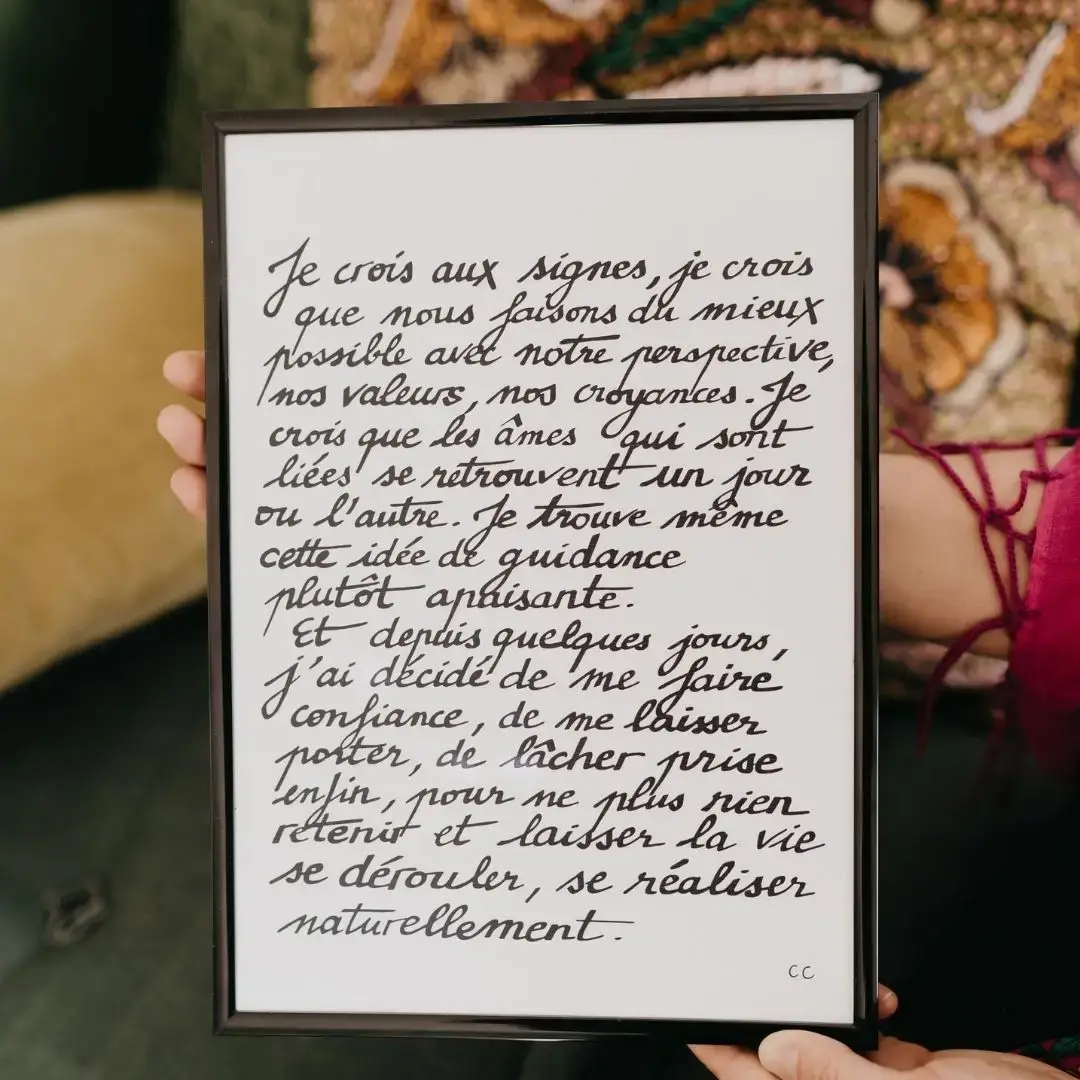 Je crois aux signes, je crois
que nous faisons du mieux
possible avec notre perspective,
nos valeurs, nos croyances. Je
crois que les âmes qui sont
liées se retrouvent un jour
ou l'autre. Je trouve même
cette idée de guidance
plutôt apaisante.
Et depuis quelques jours,
j'ai décidé de me faire
confiance, de me laisser
porter, de lâcher prise
enfin, pour ne plus rien
retenir et laisser la vie
se dérouler, se réaliser
naturellement.
CC